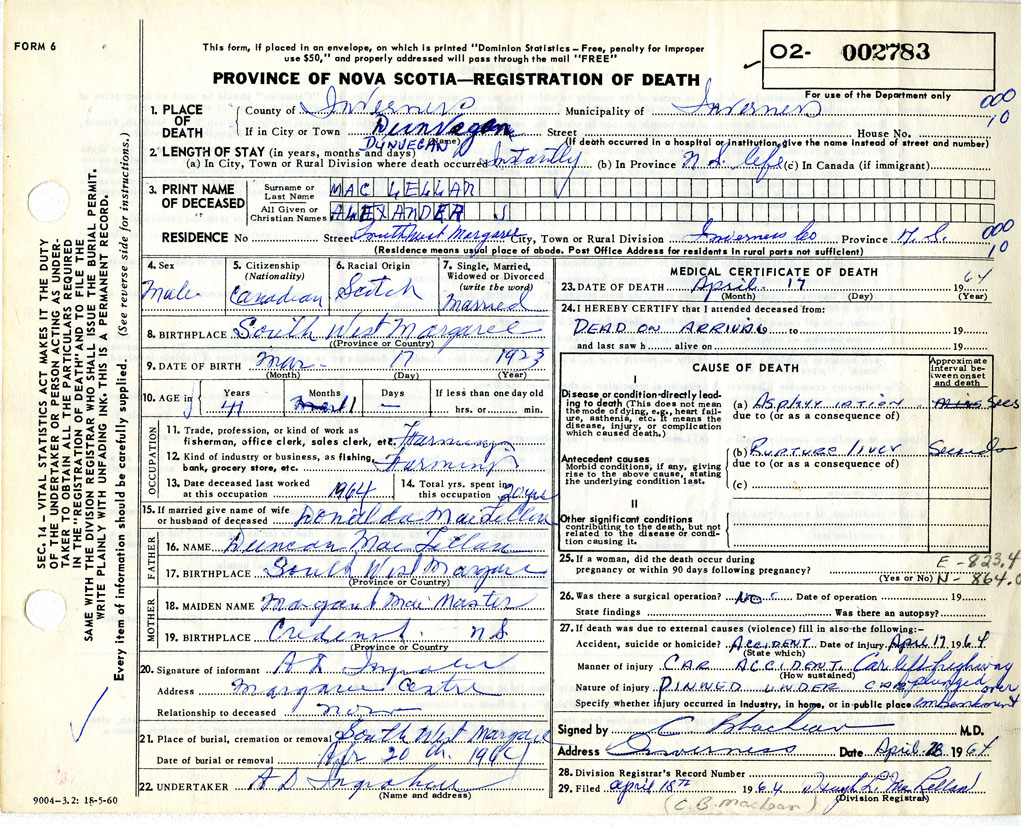 FORM 6
This form, if placed in an envelope, on which is printed "Dominion Statistics – Free, penalty for improper
use $50," and properly addressed will pass through the mail "FREE"
PROVINCE OF NOVA SCOTIA—REGISTRATION OF DEATH
02- 002783
For use of the Department only
000
10
1. PLACE OF DEATH
County of Inverness Municipality of Inverness
If in City or Town Dunvegan Street House No.
DUNVEGAN (Name) (If death occurred in a hospital or institution, give the name instead of street and number)
2. LENGTH OF STAY (in years, months and days)
(a) In City, Town or Rural Division where death occurred Instantly (b) In Province N.S. life (c) In Canada (if immigrant)
3. PRINT NAME OF DECEASED
Surname or Last Name MAC LELLAN
All Given or Christian Names ALEXANDER J
RESIDENCE No Street Southwest Margaree City, Town or Rural Division Inverness Co Province N.S.
000
10
(Residence means usual place of abode. Post Office Address for residents in rural parts not sufficient)
4. Sex Male
5. Citizenship (Nationality) Canadian
6. Racial Origin Scotch
7. Single, Married, Widowed or Divorced (write the word) Married
8. BIRTHPLACE South West Margaree
(Province or Country)
9. DATE OF BIRTH Mar. 17 1923
(Month) (Day) (Year)
10. AGE in Years 41 Months 1 Days – If less than one day old hrs. or min.
OCCUPATION
11. Trade, profession, or kind of work as fisherman, office clerk, sales clerk, etc. Farming
12. Kind of industry or business, as fishing, bank, grocery store, etc. Farming
13. Date deceased last worked at this occupation 1964
14. Total yrs. spent in this occupation 20 yrs
15. If married give name of wife or husband of deceased Donalda MacLellan
FATHER
16. NAME Duncan MacLellan
17. BIRTHPLACE South West Margaree
(Province or Country)
MOTHER
18. MAIDEN NAME Margaret MacMaster
19. BIRTHPLACE N.S.
(Province or Country
20. Signature of informant
Address Margaree Centre
Relationship to deceased none
21. Place of burial, cremation or removal South West Margaree
Date of burial or removal Apr 20 th. 1964
22. UNDERTAKER A D Ingraham
(Name and address)
9004–3.2: 18-5-60
SEC. 14 – VITAL STATISTICS ACT MAKES IT THE DUTY
OF THE UNDERTAKER OR PERSON ACTING AS UNDER-
TAKER TO OBTAIN ALL THE PARTICULARS REQUIRED
IN THE "REGISTRATION OF DEATH" AND TO FILE THE
SAME WITH THE DIVISION REGISTRAR WHO SHALL ISSUE THE BURIAL PERMIT.
WRITE PLAINLY WITH UNFADING INK. THIS IS A PERMANENT RECORD.
Every item of information should be carefully supplied. (See reverse side for instructions.)
MEDICAL CERTIFICATE OF DEATH
23. DATE OF DEATH April 17 1964
(Month) (Day) (Year)
24. I HEREBY CERTIFY that I attended deceased from:
DEAD ON ARRIVAL to 19
and last saw h alive on 19
CAUSE OF DEATH
Approximate interval between onset and death
I
Disease or condition directly leading to death (This does not mean the mode of dying, e.g., heart failure, asthenia, etc. It means the disease, injury, or complication which caused death.)
(a) Asphyxiation Secs
due to (or as a consequence of)
Antecedent causes
Morbid conditions, if any, giving rise to the above cause, stating the underlying condition last.
(b) Rupture liver Seconds
due to (or as a consequence of)
(c)
II
Other significant conditions
contributing to the death, but not related to the disease or condition causing it.
25. If a woman, did the death occur during pregnancy or within 90 days following pregnancy?
(Yes or No)
E-823.4
N-864.0
26. Was there a surgical operation? NO Date of operation 19
State findings Was there an autopsy?
27. If death was due to external causes (violence) fill in also the following:–
Accident, suicide or homicide? ACCIDENT Date of injury April 17 1964
(State which)
Manner of injury CAR ACCIDENT Car left highway
(How sustained) plunged over
Nature of injury PINNED UNDER CAR
Specify whether injury occurred in industry, in home, or in public place embankment
Signed by M.D.
Address Inverness Date April 1964
28. Division Registrar's Record Number
29. Filed April 18th 1964 Hugh L. MacLellan
(Division Registrar)
(C. B. MacLean)